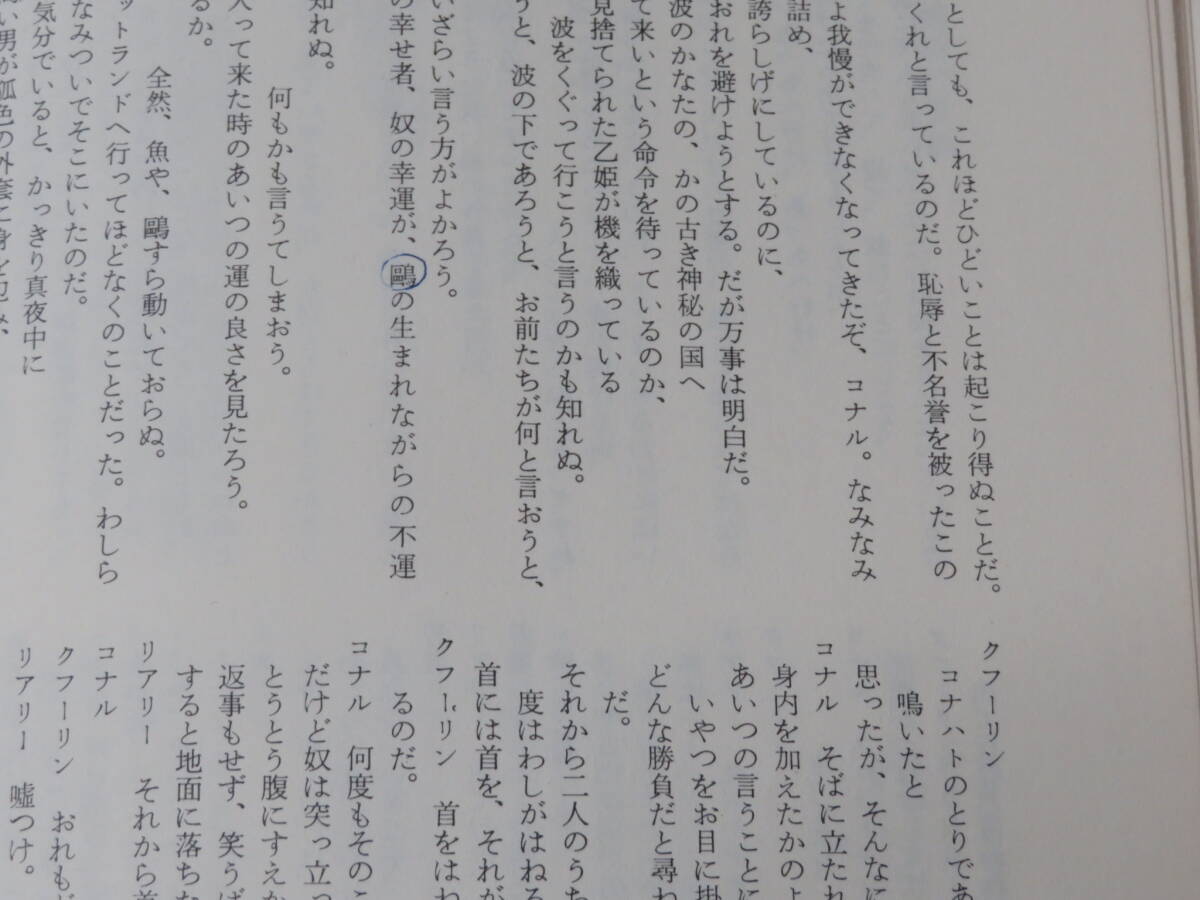 としても、これほどひどいことは起こり得ぬことだ。
くれと言っているのだ。恥辱と不名誉を被ったこの
よ我慢ができなくなってきたぞ、コナル。なみなみ
詰め、
誇らしげにしているのに、
おれを避けようとする。だが万事は明白だ。
波のかなたの、かの古き神秘の国へ
て来いという命令を待っているのか、
見捨てられた乙姫が機を織っている
波をくぐって行こうと言うのかも知れぬ。
うと、波の下であろうと、お前たちが何と言おうと、
いざらい言う方がよかろう。
の幸せ者、奴の幸運が、鷗の生まれながらの不運
知れぬ。
何もかも言うてしまおう。
入って来た時のあいつの運の良さを見たろう。
るか。
全然、魚や、鷗すら動いておらぬ。
ットランドへ行ってほどなくのことだった。わしら
なみついでそこにいたのだ。
気分でいると、かっきり真夜中に
い男が狐色の外套に身を包み、
クフーリン
コナハトのとりであ
鳴いたと
思ったが、そんなに
コナル そばに立たれ
身内を加えたかのよ
あいつの言うことに
いやつをお目に掛
どんな勝負だと尋ね
だ。
それから二人のうち
度はわしがはねる
首には首を、それが
クフーリン 首をはね
るのだ。
コナル 何度もそのこ
だけど奴は突っ立っ
とうとう腹にすえか
返事もせず、笑うば
すると地面に落ちた
リアリー それから首
コナル
クフーリン おれもど
リアリー 嘘つけ。